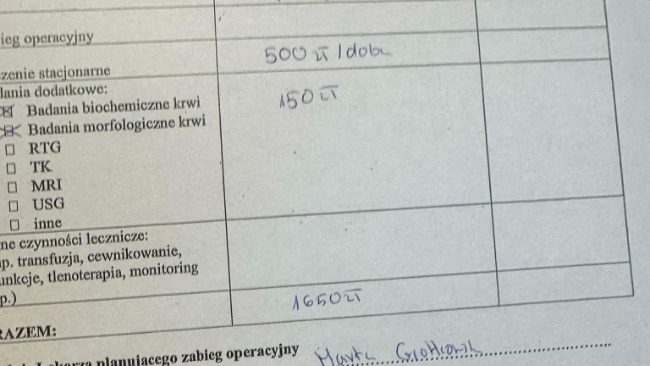 ieg operacyjny
zenie stacjonarne 500 zł / dobę
lania dodatkowe:
Badania biochemiczne krwi 150 zł
Badania morfologiczne krwi
RTG
TK
MRI
USG
inne
ne czynności lecznicze:
np. transfuzja, cewnikowanie,
unkcje, tlenoterapia, monitoring
p.)
RAZEM: 1650 zł
Lekarza planującego zabieg operacyjny Marta